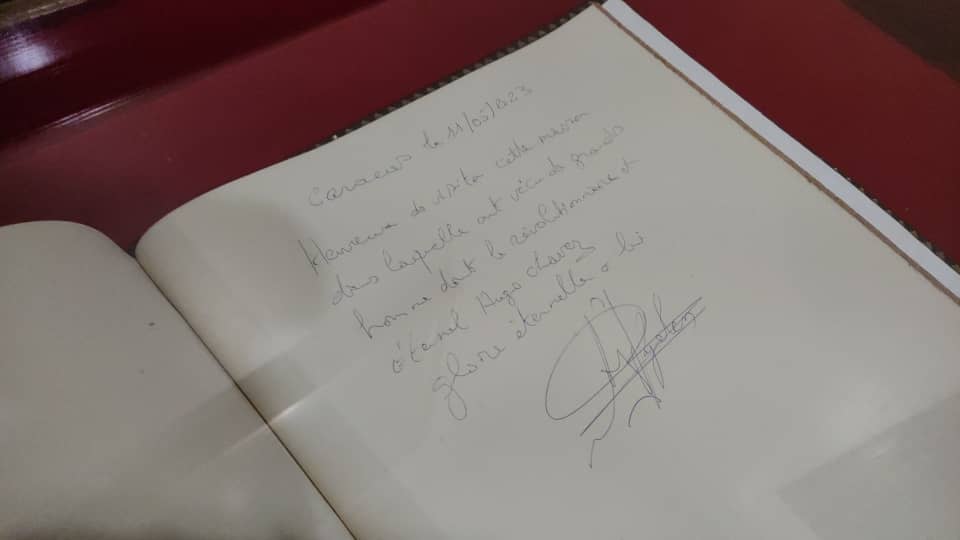 Caracas le 11/05/2023
Heureux de visiter cette maison
dans laquelle ont vécu de grands
homme dont le révolutionnaire et
éternel Hugo Chavez
gloire éternelle à lui